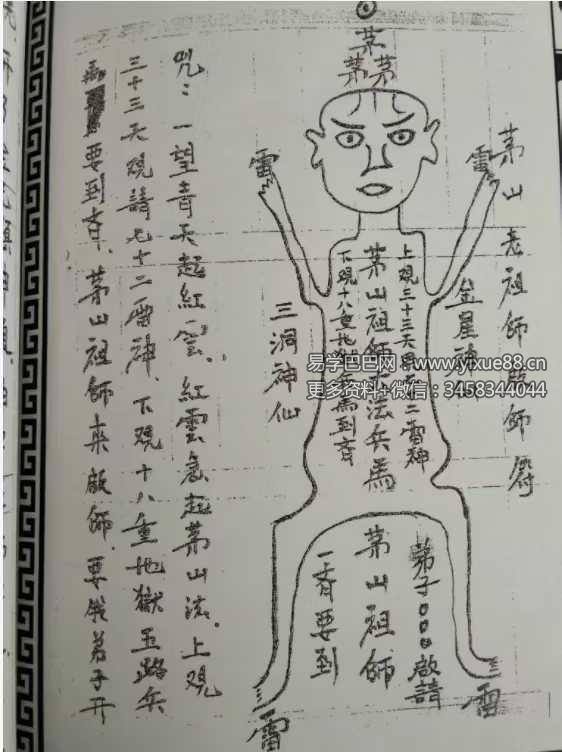 茅
茅茅
雷
雷
茅山老祖師啟師符
金星神
上覌三十三天
二雷神
茅山祖師
法兵馬
下覌十八重地獄
馬到斉
三洞神仙
弟子○○○啟請
茅山祖師
一斉要到
雷
雷
咒：一望青天起紅雲、紅雲忽起茅山法、上覌
三十三天覌請七十二雷神、下覌十八重地獄五路兵
馬要到斉、茅山祖師来啟師、要俄弟子开
易学巴巴网 www.yixue88.cn
更多资料+微信：3458344044